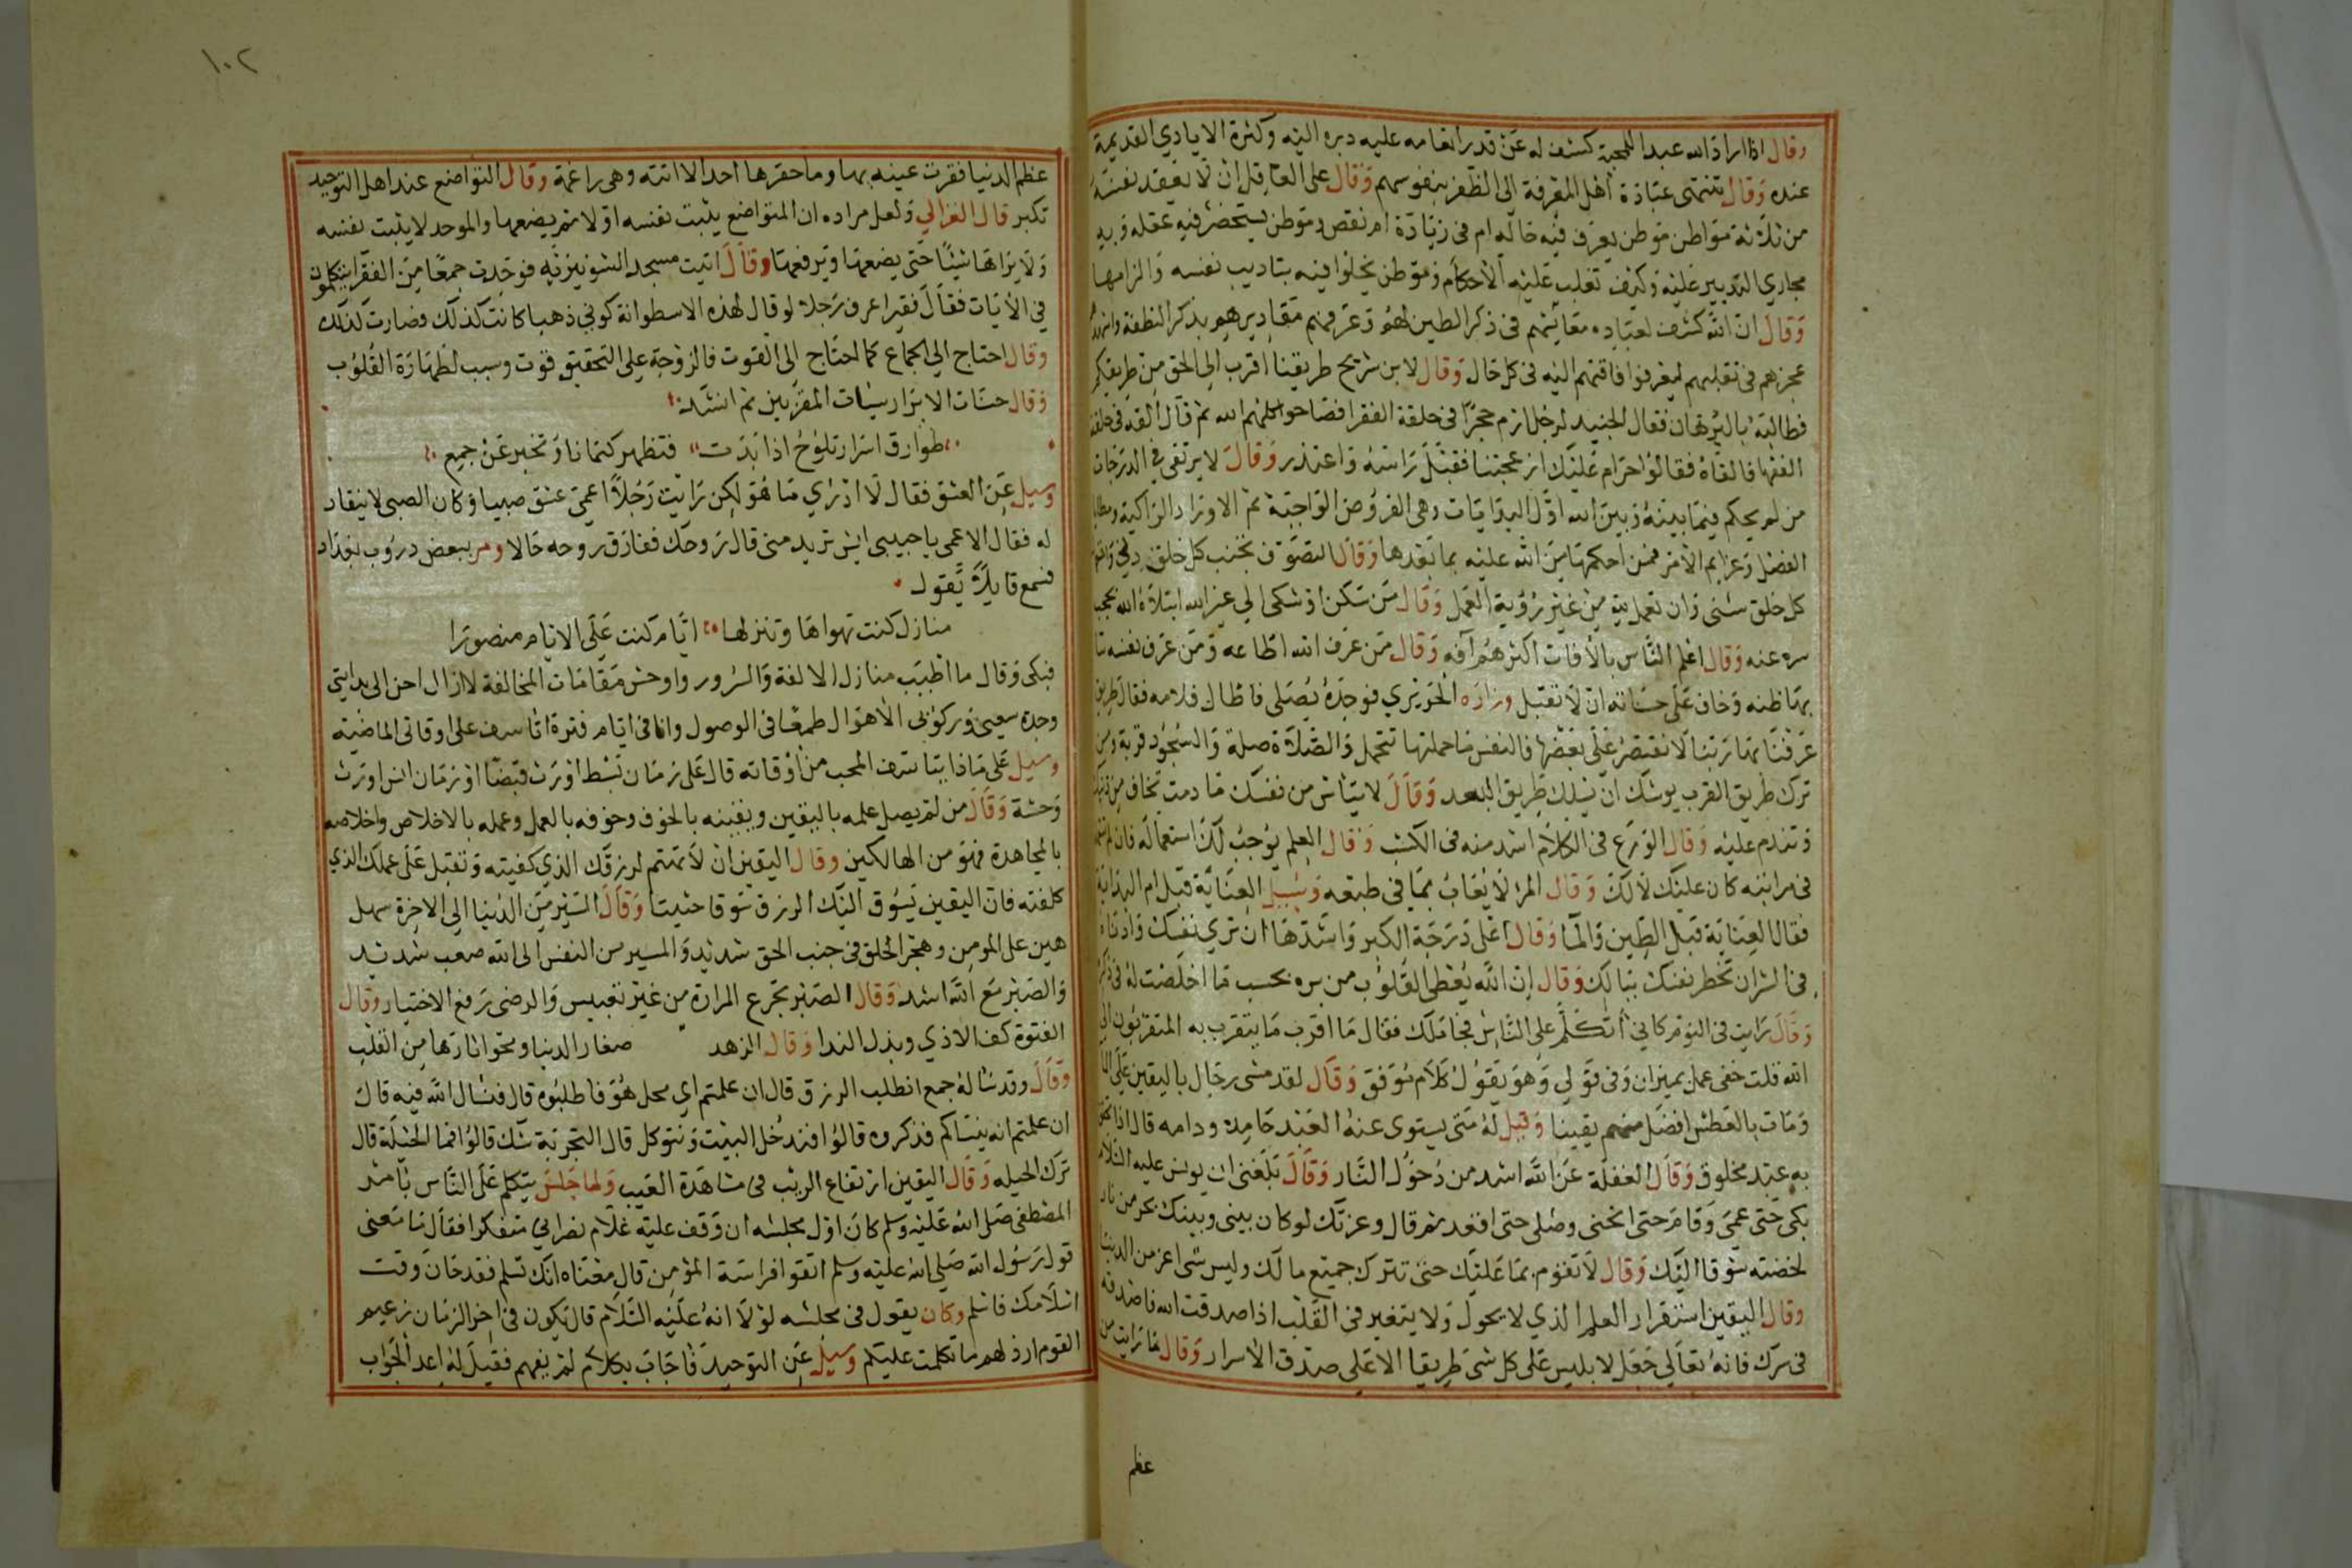 وقال اذا اراد الله عبدا للمحبة كشف له عن قدر انعامه عليه دبره اليه وكثرة الايادي القديمة
عنده وقال تنتهى عبادة اهل المعرفة الى الظفر بنفوسهم وقال على العاقل ان لا يفقد نفسه
من ثلاثة مواطن موطن يعرف فيه حاله ام فى زيادة ام نقص وموطن يستحضر فيه عقله وبه
مجاري التدبير عليه وكيف تغلب عليه الاحكام وموطن يخلوا فيه بتاديب نفسه والزامها
وقال ان الله كشف لعباده معائبهم فى ذكر الطين لهم وعرفهم مقاديرهم بذكر النطفة
عجزهم فى تقلبهم ليعرفوا فاقتهم اليه فى كل حال وقال لابن شريح طريقنا اقرب الى الحق من طريقكم
فطالبه بالبرهان فقال الجنيد لرجل ارم حجرا فى حلقة الفقرا فصاحوا كلهم الله ثم قال القه فى حلقة
الفقها فالقاه فقالوا حرام عليك ازعجتنا فقبل راسه واعتذر وقال لا يرتقى في الدرجات
من لم يحكم فيما بينه وبين الله اول البدايات وهى الفروض الواجبة ثم الاوراد الزاكية
الفضل وعزايم الامر فمن احكمها من الله عليه بما بعدها وقال التصوف تجنب كل خلق دنى
كل خلق سنى وان تعمل لله من غير رؤية العمل وقال من سكن او شكى الى غير الله ابتلاه الله بحجب
سره عنه وقال اعلم الناس بالأفات اكثرهم آفه وقال من عرف الله اطاعه ومن عرف نفسه سا
بها ظنه وخاف على حسناته ان لا تقبل وزاره الحريري فوجده يصلى فاطال فلامه فقال طريق
عرفنا بها ربنا لا نقتصر على بعضها فالنفس ما حملتها تتحمل والصلاة صلة والسجود قربة ومن
ترك طريق القرب يوشك ان يسلك طريق البعد وقال لا تياس من نفسك ما دمت تخاف من ذنبك
وتندم عليه وقال الورع فى الكلام اشد منه فى الكسب وقال العلم يوجب لك استعماله فان لم
فى مراتبه كان عليك لا لك وقال المرء لا يعاب بما فى طبعه وسيل العناية قبل ام البداية
فقال العناية قبل الطين والما وقال اعلى درجة الكبر واشدها ان ترى نفسك وادناه
فى الشران تخطر نفسك ببالك وقال ان الله يعطى القلوب من بره بحسب ما اخلصت له فى ذكره
وقال رايت فى النوم كاني أتكلم على الناس فجا ملك فقال ما اقرب ما يتقرب به المتقربون الى
الله قلت خفى عمل بميزان وفى فولى وهو يقول كلام موفق وقال لقد مشى رجال باليقين على الما
ومات بالعطش افضل منهم يقينا وقيل له متى يستوى عند العبد حامده ودامه قال اذا تحقق
به عبد مخلوق وقال الغفلة عن الله اشد من دخول النار وقال بلغنى ان يونس عليه السلام
بكى حتى عمى وقام حتى انحنى وصلى حتى اقعد ثم قال وعزتك لو كان بينى وبينك بحر من نار
لخضته شوقا اليك وقال لا تقوم بما عليك حتى تترك جميع مالك وليس شى اعز من الدنيا
وقال اليقين استقرار العلم الذي لا يحول ولا يتغير فى القلب اذا صدقت الله فاصدقه
فى سرك فانه تعالى جعل لابليس على كل شى طريقا الا على صدق الأسرار وقال ما رايت من
عظم
١٠٢
عظم الدنيا فقرت عينه بها وما حقرها احد الا اتته وهى راغمة وقال التواضع عند اهل التوحيد
تكبر قال الغزالي ولعل مراده ان المتواضع يثبت نفسه اولا ثم يضعها والموحد لا يثبت نفسه
ولا يراها شيئا حتى يضعها ويرفعها وقال اتيت مسجد الشونيزيه فوجدت جمعا من الفقرا يتكلمون
في الأيات فقال فقير اعرف رجلا لو قال لهذه الاسطوانة كوني ذهبا كانت كذلك فصارت كذلك
وقال احتاج الي الجماع كما احتاج الى القوت فالزوجة على التحقيق قوت وسبب لطهارة القلوب
وقال حسنات الابرار سيات المقربين ثم انشد
طوارق اسرار تلوح اذا بدت فتظهر كتمانا وتخبر عن جميع
وسيل عن العشق فقال لا ادري ما هو لكن رايت رجلا اعمى عشق صبيا وكان الصبى لا ينقاد
له فقال الاعمى يا حبيبى ايش تريد منى قال روحك ففارق روحه حالا ومر ببعض دروب بغداد
فسمع قايلا يقول
منازل كنت تهواها وتنزلها ايام كنت على الايام منصورا
فبكى وقال ما اطيب منازل الالفة والسرور واوحش مقامات المخالفة لا ازال احن الى بدايتي
وجدة سعيى وركوبى الاهوال طمعا فى الوصول وانا فى ايام فترة اتاسف على اوقاتى الماضية
وسيل على ماذا يتاسف المحب من اوقاته قال على زمان بسط اورث قبضا او زمان انس اورث
وحشة وقال من لم يصل علمه باليقين ويقينه بالخوف وخوفه بالعمل وعمله بالاخلاص واخلاصه
بالمجاهدة فهو من الهالكين وقال اليقين ان لا تهتم لرزقك الذي كفيته وتقبل على عملك الذي
كلفته فان اليقين يسوق اليك الرزق سوقا حثيثا وقال السير من الدنيا الى الاخرة سهل
هين على المومن وهجر الخلق فى جنب الحق شديد والمسير من النفس الى الله صعب شديد
والصبر مع الله اشد وقال الصبر تجرع المرارة من غير تعبيس والرضى رفع الاختيار وقال
الفتوة كف الاذي وبذل الندا وقال الزهد صغار الدنيا ومحو اثارها من القلب
وقال وقد ساله جمع انطلب الرزق قال ان علمتم اي محل هو فاطلبوه قال فنسال الله فيه قال
ان علمتم انه ينساكم فذكروه قالوا افندخل البيت ونتوكل قال التجربة شك قالوا فما الحيلة قال
ترك الحيله وقال اليقين ارتفاع الريب فى مشاهدة الغيب ولما جلس يتكلم على الناس بامر
المصطفى صلى الله عليه وسلم كان اول مجلسه ان وقف عليه غلام نصراني متفكرا فقال ما معنى
قول رسول الله صلى الله عليه وسلم اتقوا فراسة المؤمن قال معناه انك تسلم فقد حان وقت
اسلامك فاسلم وكان يقول فى مجلسه لولا انه عليه السلام قال يكون فى اخر الزمان زعيم
القوم ارذلهم ما تكلمت عليكم وسيل عن التوحيد فاجاب بكلام لم يفهم فقيل له اعد الجواب